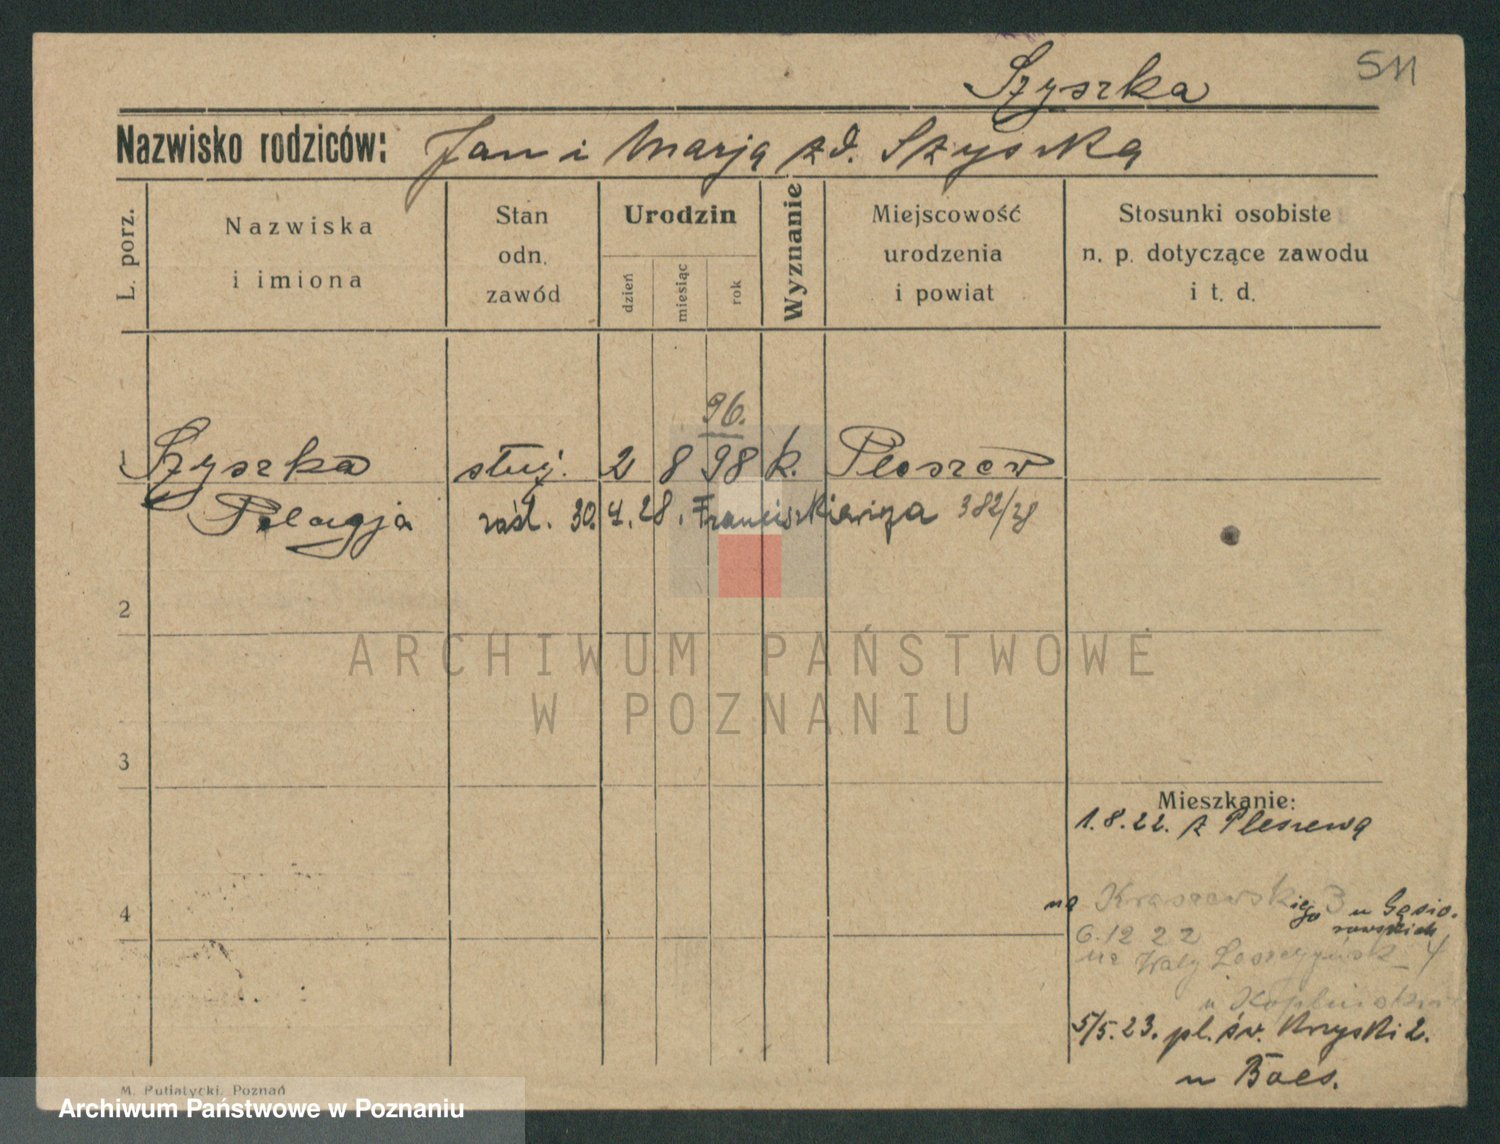 Szyszka
511
Nazwisko rodziców: Jan i Marja zd. Szyszka
L. porz.
Nazwiska
i imiona
Stan
odn.
zawód
Urodzin
dzień
miesiąc
rok
Wyznanie
Miejscowość
urodzenia
i powiat
Stosunki osobiste
n. p. dotyczące zawodu
i t. d.
96.
1 Szyszka służ. 2 8 98 k. Pleszew
Pelagja zaśl. 30.4.28. Franciszkiewicza 382/28
2
ARCHIWUM PAŃSTWOWE
W POZNANIU
3
Mieszkanie:
1.8.22. z Pleszewa
4
na Kraszewskiego 3 u Gąsio-
rowskich
6.12 22
na Wały 4
u
5/5.23. pl. św. Krzyski 2.
u Baes.
M. Putiatycki, Poznań
Archiwum Państwowe w Poznaniu